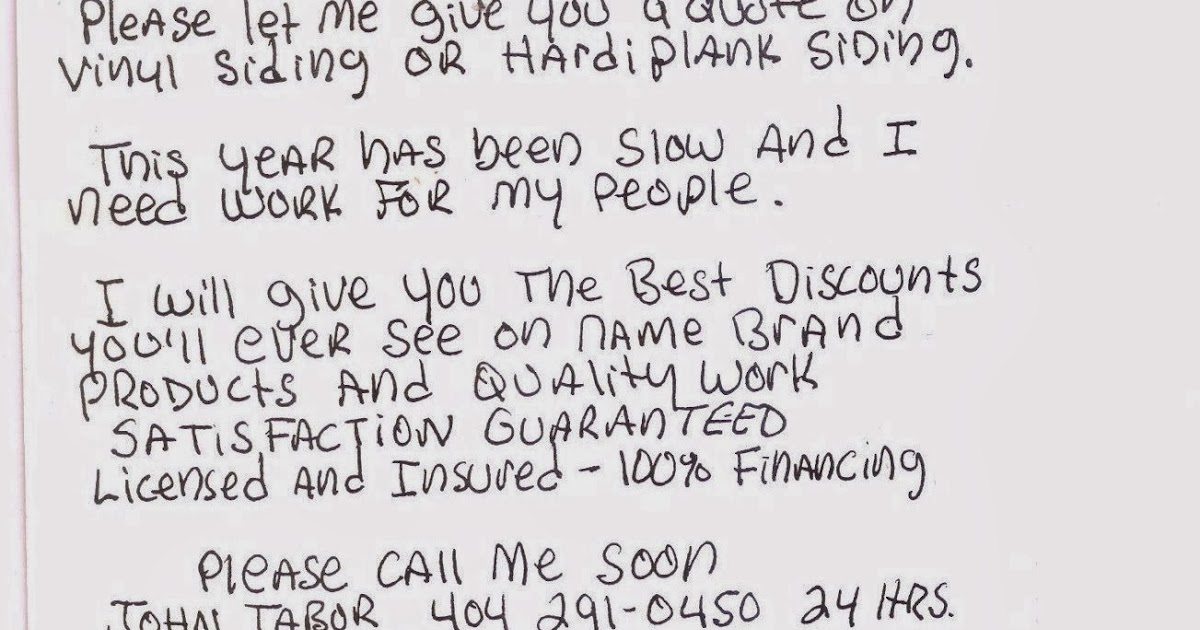 Please let me give you a quote on
vinyl siding or Hardiplank siding.
This year has been slow and I
need work for my people.
I will give you the Best Discounts
you'll ever see on name Brand
products and quality work
SATISFACTION GUARANTEED
Licensed and Insured - 100% Financing
Please call me soon
JOHN TABOR 404 291-0450 24 HRS.